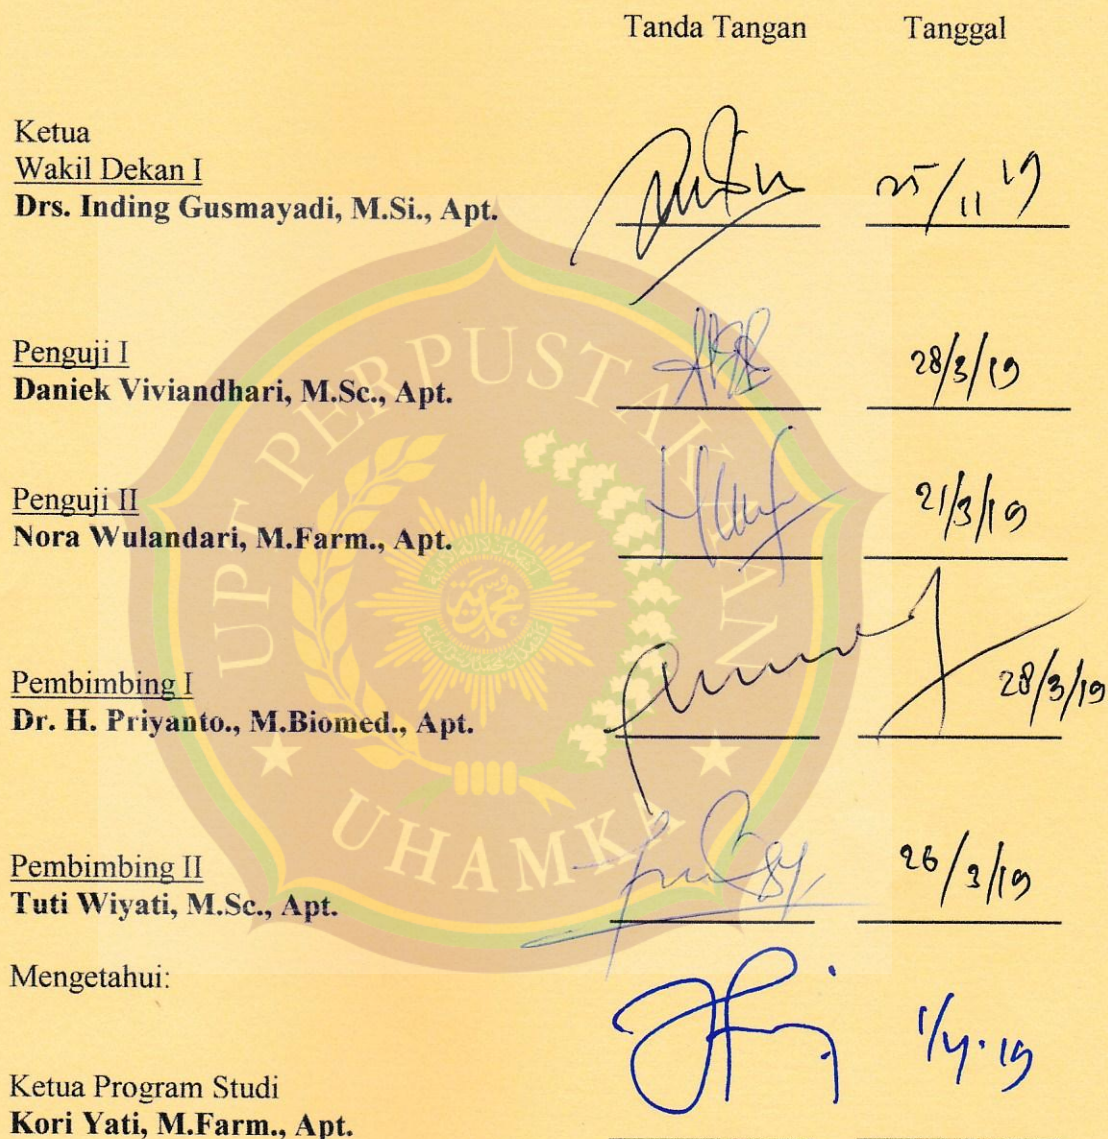 Tanda Tangan Tanggal
Ketua
Wakil Dekan I
Drs. Inding Gusmayadi, M.Si., Apt. 25/11 19
Penguji I
Daniek Viviandhari, M.Sc., Apt. 28/3/19
Penguji II
Nora Wulandari, M.Farm., Apt. 21/3/19
Pembimbing I
Dr. H. Priyanto., M.Biomed., Apt. 28/3/19
Pembimbing II
Tuti Wiyati, M.Sc., Apt. 26/3/19
Mengetahui:
1/4.19
Ketua Program Studi
Kori Yati, M.Farm., Apt.
UPT PERPUSTAKAAN
UHAMKA